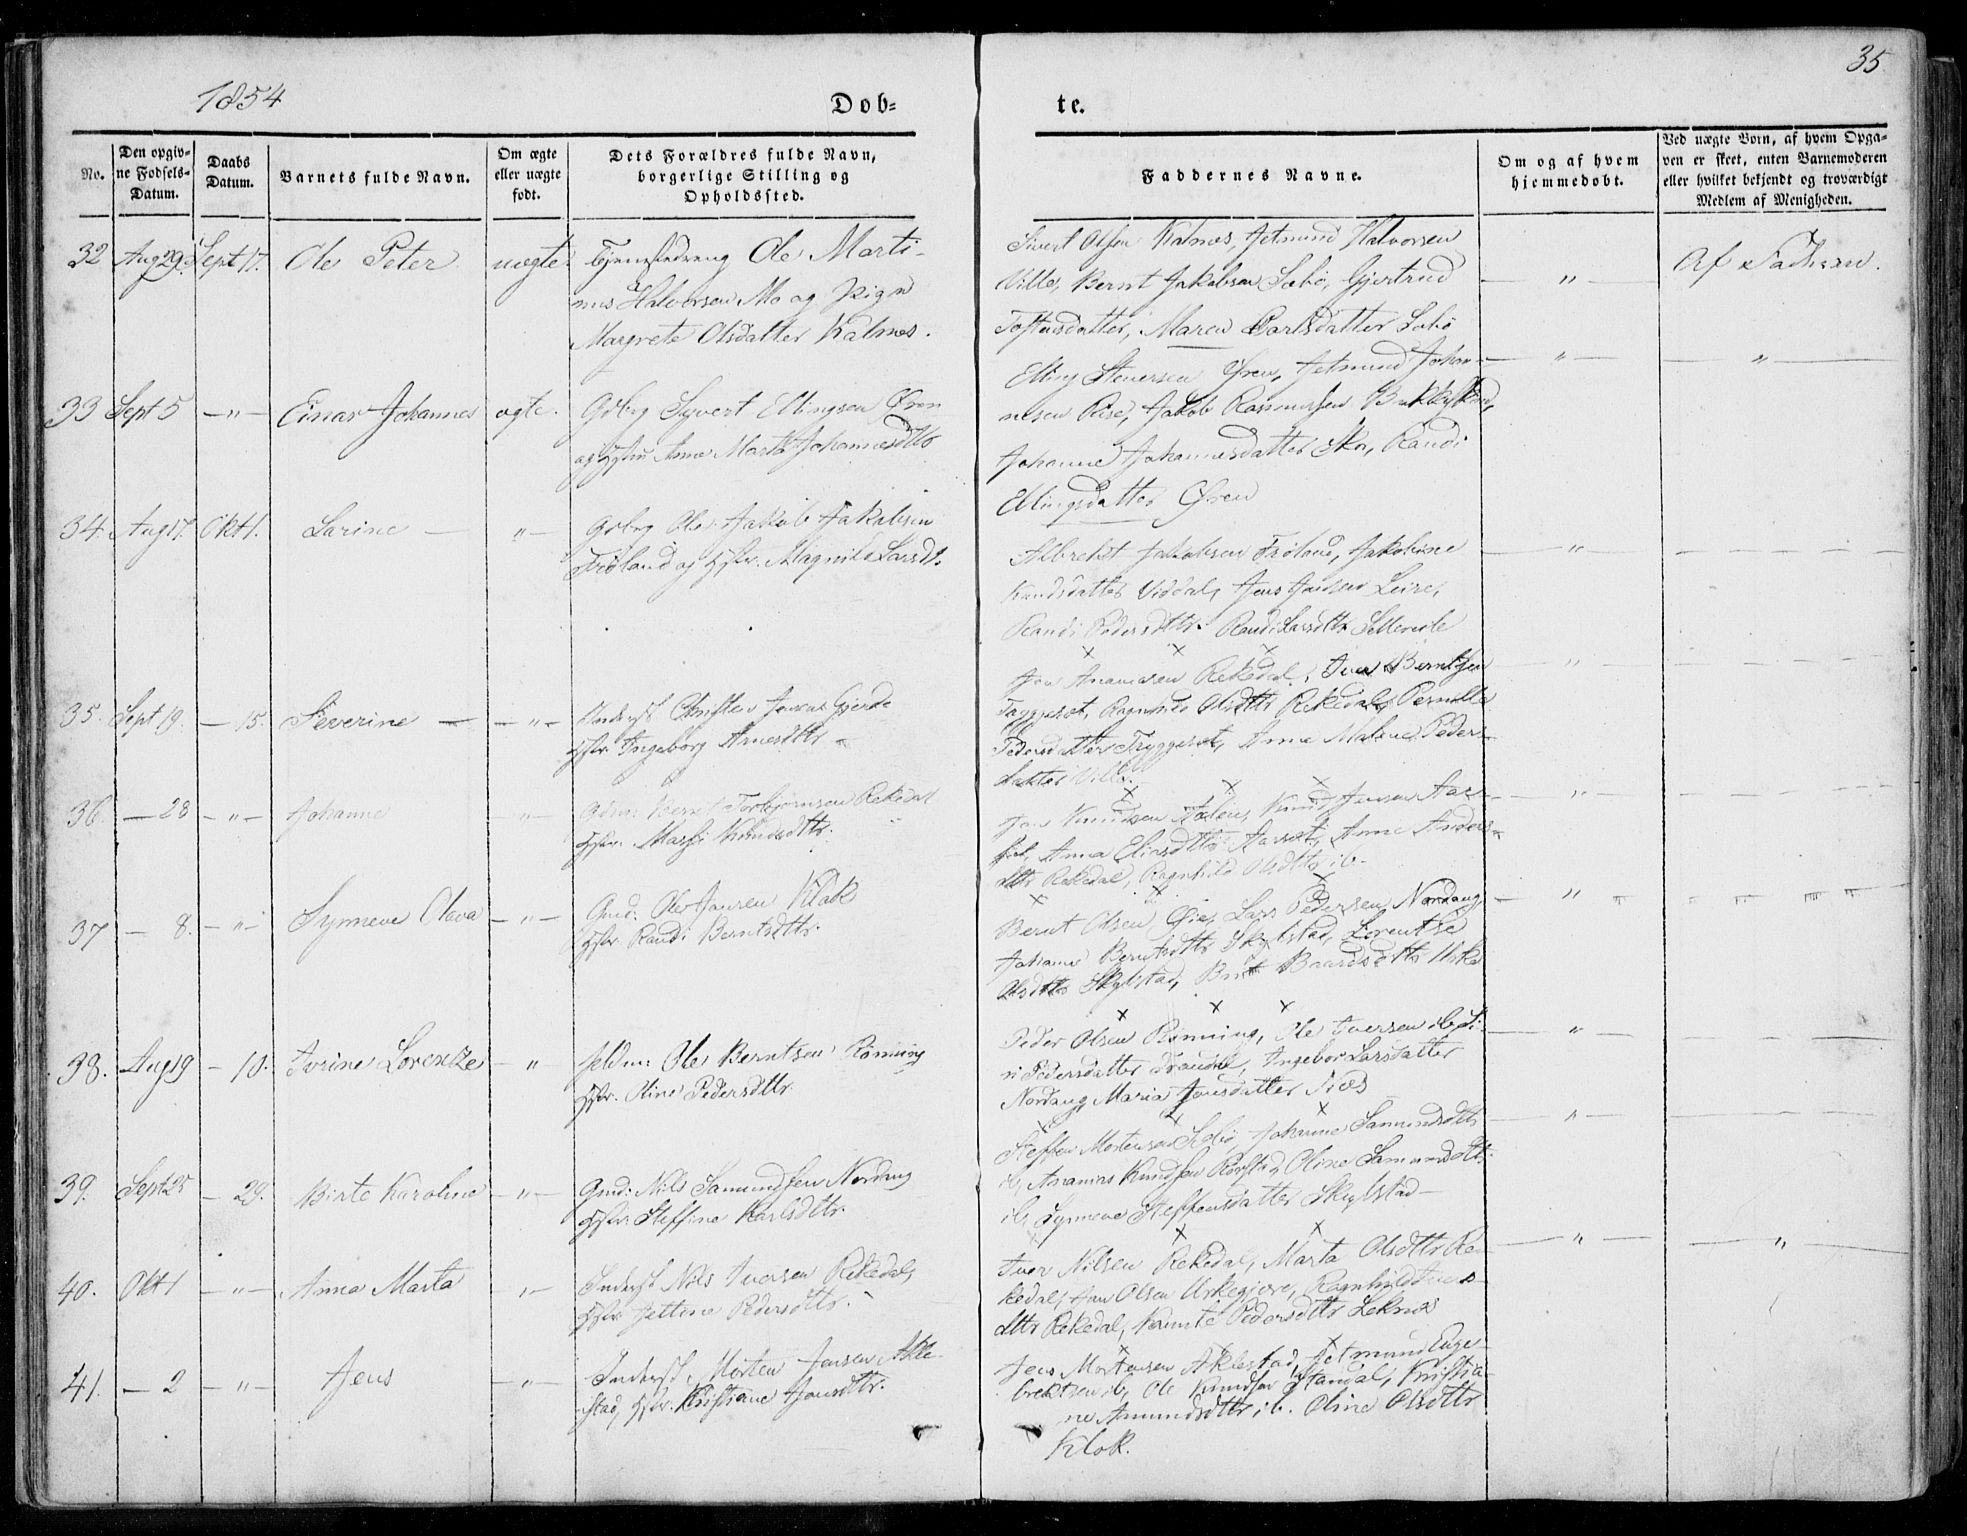 1854
Dob-
te.
35
No.
Den opgiv-
ne Fødsels-
Datum.
Daabs
Datum.
Barnets fulde Navn.
Om ægte
eller uægte
født.
Dets Forældres fulde Navn,
borgerlige Stilling og
Opholdssted.
Faddernes Navne.
Om og af hvem
hjemmedøbt.
Ved uægte Børn, af hvem Opga-
ven er skeet, enten Barnemoderen
eller hvilket bekjendt og troværdigt
Medlem af Menigheden.
32 Aug 29. Sept 17. Ole Peter uægte Ole Marti-
nus Halvorsen Mo og Pigen
Margrete Olsdatter Kalnes.
Sivert Olsen Kalnes, Jetmund Halvorsen
Ville, Bernt Jakobsen Sæbø, Gjertrud
Toftensdatter, Maren Carlsdatter Sæbø
" Af Faderen.
33 Sept 5 —"— Einar Johannes ægte. Gdbrg Syvert Ellingsen Øren
og Hstru Anne Marta Johannesdttr
Elling Sieversen Øren, Jetmund Johan-
nesen Rise, Jakob Rasmussen
Johanne Johannesdatter Skor, Randi
Ellingsdatter Øren
" "
34. Aug 17. Okt 1. Larine — " — Gdbrg Ole Jakob Jakobsen
Frøland og Hstr. Magnild Larsdt.
Albrekt Jakobsen Frøland, Jakobine
Knudsdatter Viddal, Jens Jensen Leire,
Randi Pedersdttr. Randi Larsdttr
"
35. Sept 19. — 15. Severine — — " — Inderst Christen Jonsen Gjerde
Hstr. Ingeborg Arnesdttr
Jon Ananiasen Rekedal, Iver Berntsen
Tryggeset, Ragnhild Olsdttr Rekedal, Pernille
Pedersdatter Tryggeset, Anne Malene Peders-
datter Ville.
"
36. — 28 — " — Johanne — " — Bernt Torbjørnsen Rekdal
Hstr. Marte Knudsdttr.
Jon Knudsen Aalen, Knud Jensen Aar-
set, Anna Eliasdttr Aarset, Anne Anders-
dttr Rekedal, Ragnhild Olsdttr ib.
"
37 — 8. — " — Synneve Oleva — " — Gmd: Ole Jansen Klok
Hstr. Randi Berntsdttr.
Bernt Olsen Øie, Lars Pedersen Nordang,
Johanne Berntsdttr Skylstad, Lorentse
Olsdttr Skylstad, Brit Baardsdttr Urke
"
38. Aug 19 — 10. Ivrine Lorentze — " Ole Berntsen Rønning
Hstr. Oline Pedersdttr.
Peder Olsen Rønning, Ole Iversen ib, Si-
ri Pedersdatter Frausdal, Ingebor Larsdatter
Nordang, Maria Jonsdatter Næs
"
39. Sept 25 — 29. Birte Karoline — " — Gmd: Nils Samundsen Nordang
Hstr: Steffine Karlsdttr.
Steffen Mortensen Sæbø, Johanne Samundsdttr
ib, Ananias Knudsen Rørstad, Oline Samundsdttr
ib, Synneve Steffensdatter Skylstad —
"
40. Okt 1 — " — Anna Marta — " — Inderst Nils Iversen Rekedal,
Hstr Jettine Pedersdttr.
Iver Nilsen Rekedal, Marta Olsdttr Re-
kedal, Jon Olsen Urkegjere, Ragnhild Ivers-
dttr Rekedal, Pedersdttr Leknes
" "
41. — 2 — " — Jens — " — Inderst, Morten Jensen Akle-
stad, Hstr. Kristiane Jonsdttr.
Jens Mortensen Aklestad, Jetmund Enge-
brektsen ib, Ole Knudsen Standal, Kristia-
ne Amundsdttr ib. Oline Olsdttr
Klok.